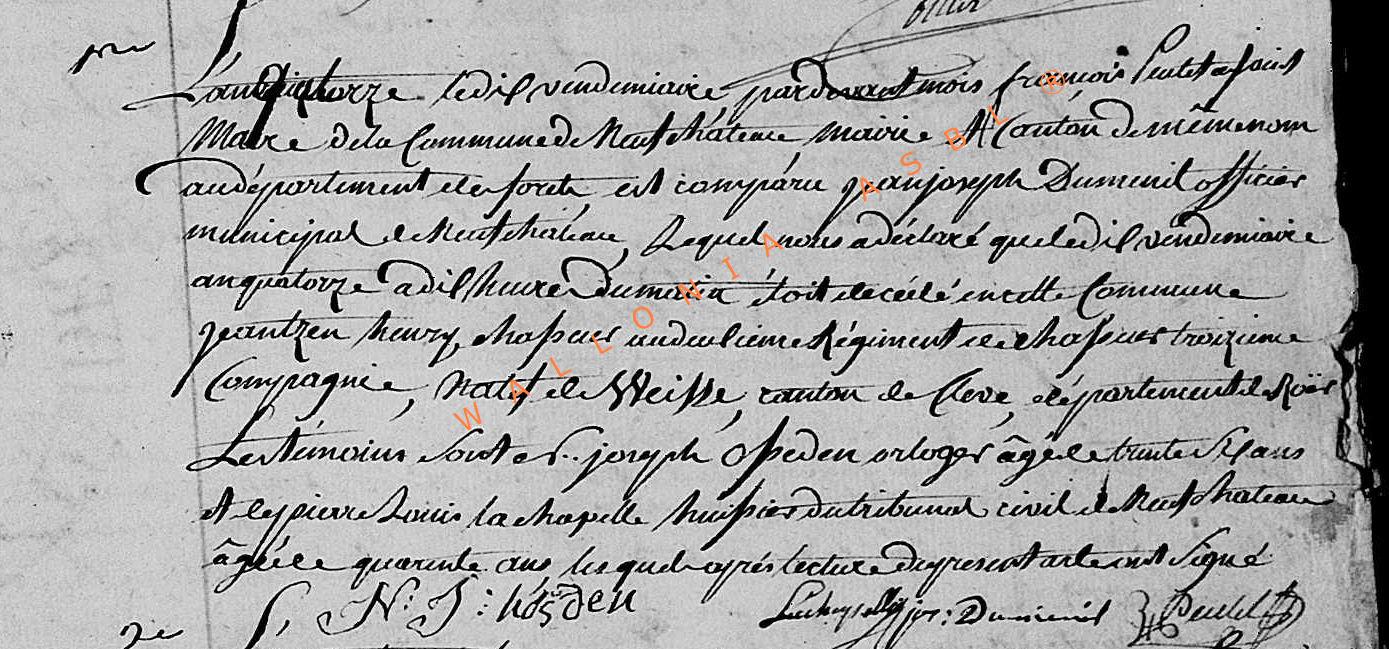 L'an quatorze le dix vendemiaire pardevant nous françois
Maire de la Commune de Neufchâteau mairie et Canton de même nom
au département des forets est comparu jean joseph Dumenil officier
municipal de Neufchâteau, Lequel nous a déclaré que le dix vendemiaire
an quatorze a dix heures du matin étoit decédé en cette Commune
henry, chasseur au Régiment de chasseurs troizieme
Compagnie, natif de Weisse, canton de Cleve, département de Roër
Les témoins sont N. joseph orloger âgé de trente six ans
et pierre Louis lachapelle huissier du tribunal civil de Neufchateau
âgé de quarente ans lesquels après lecture du present acte ont signé
N: J: Lachapelle jos: Dumenil
2e
WALLONIA ASBL ®